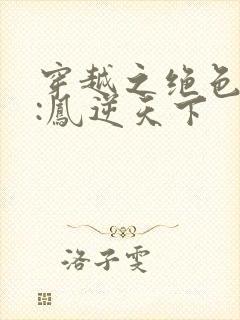 穿越之绝色
:凰逆天下
洛子雯